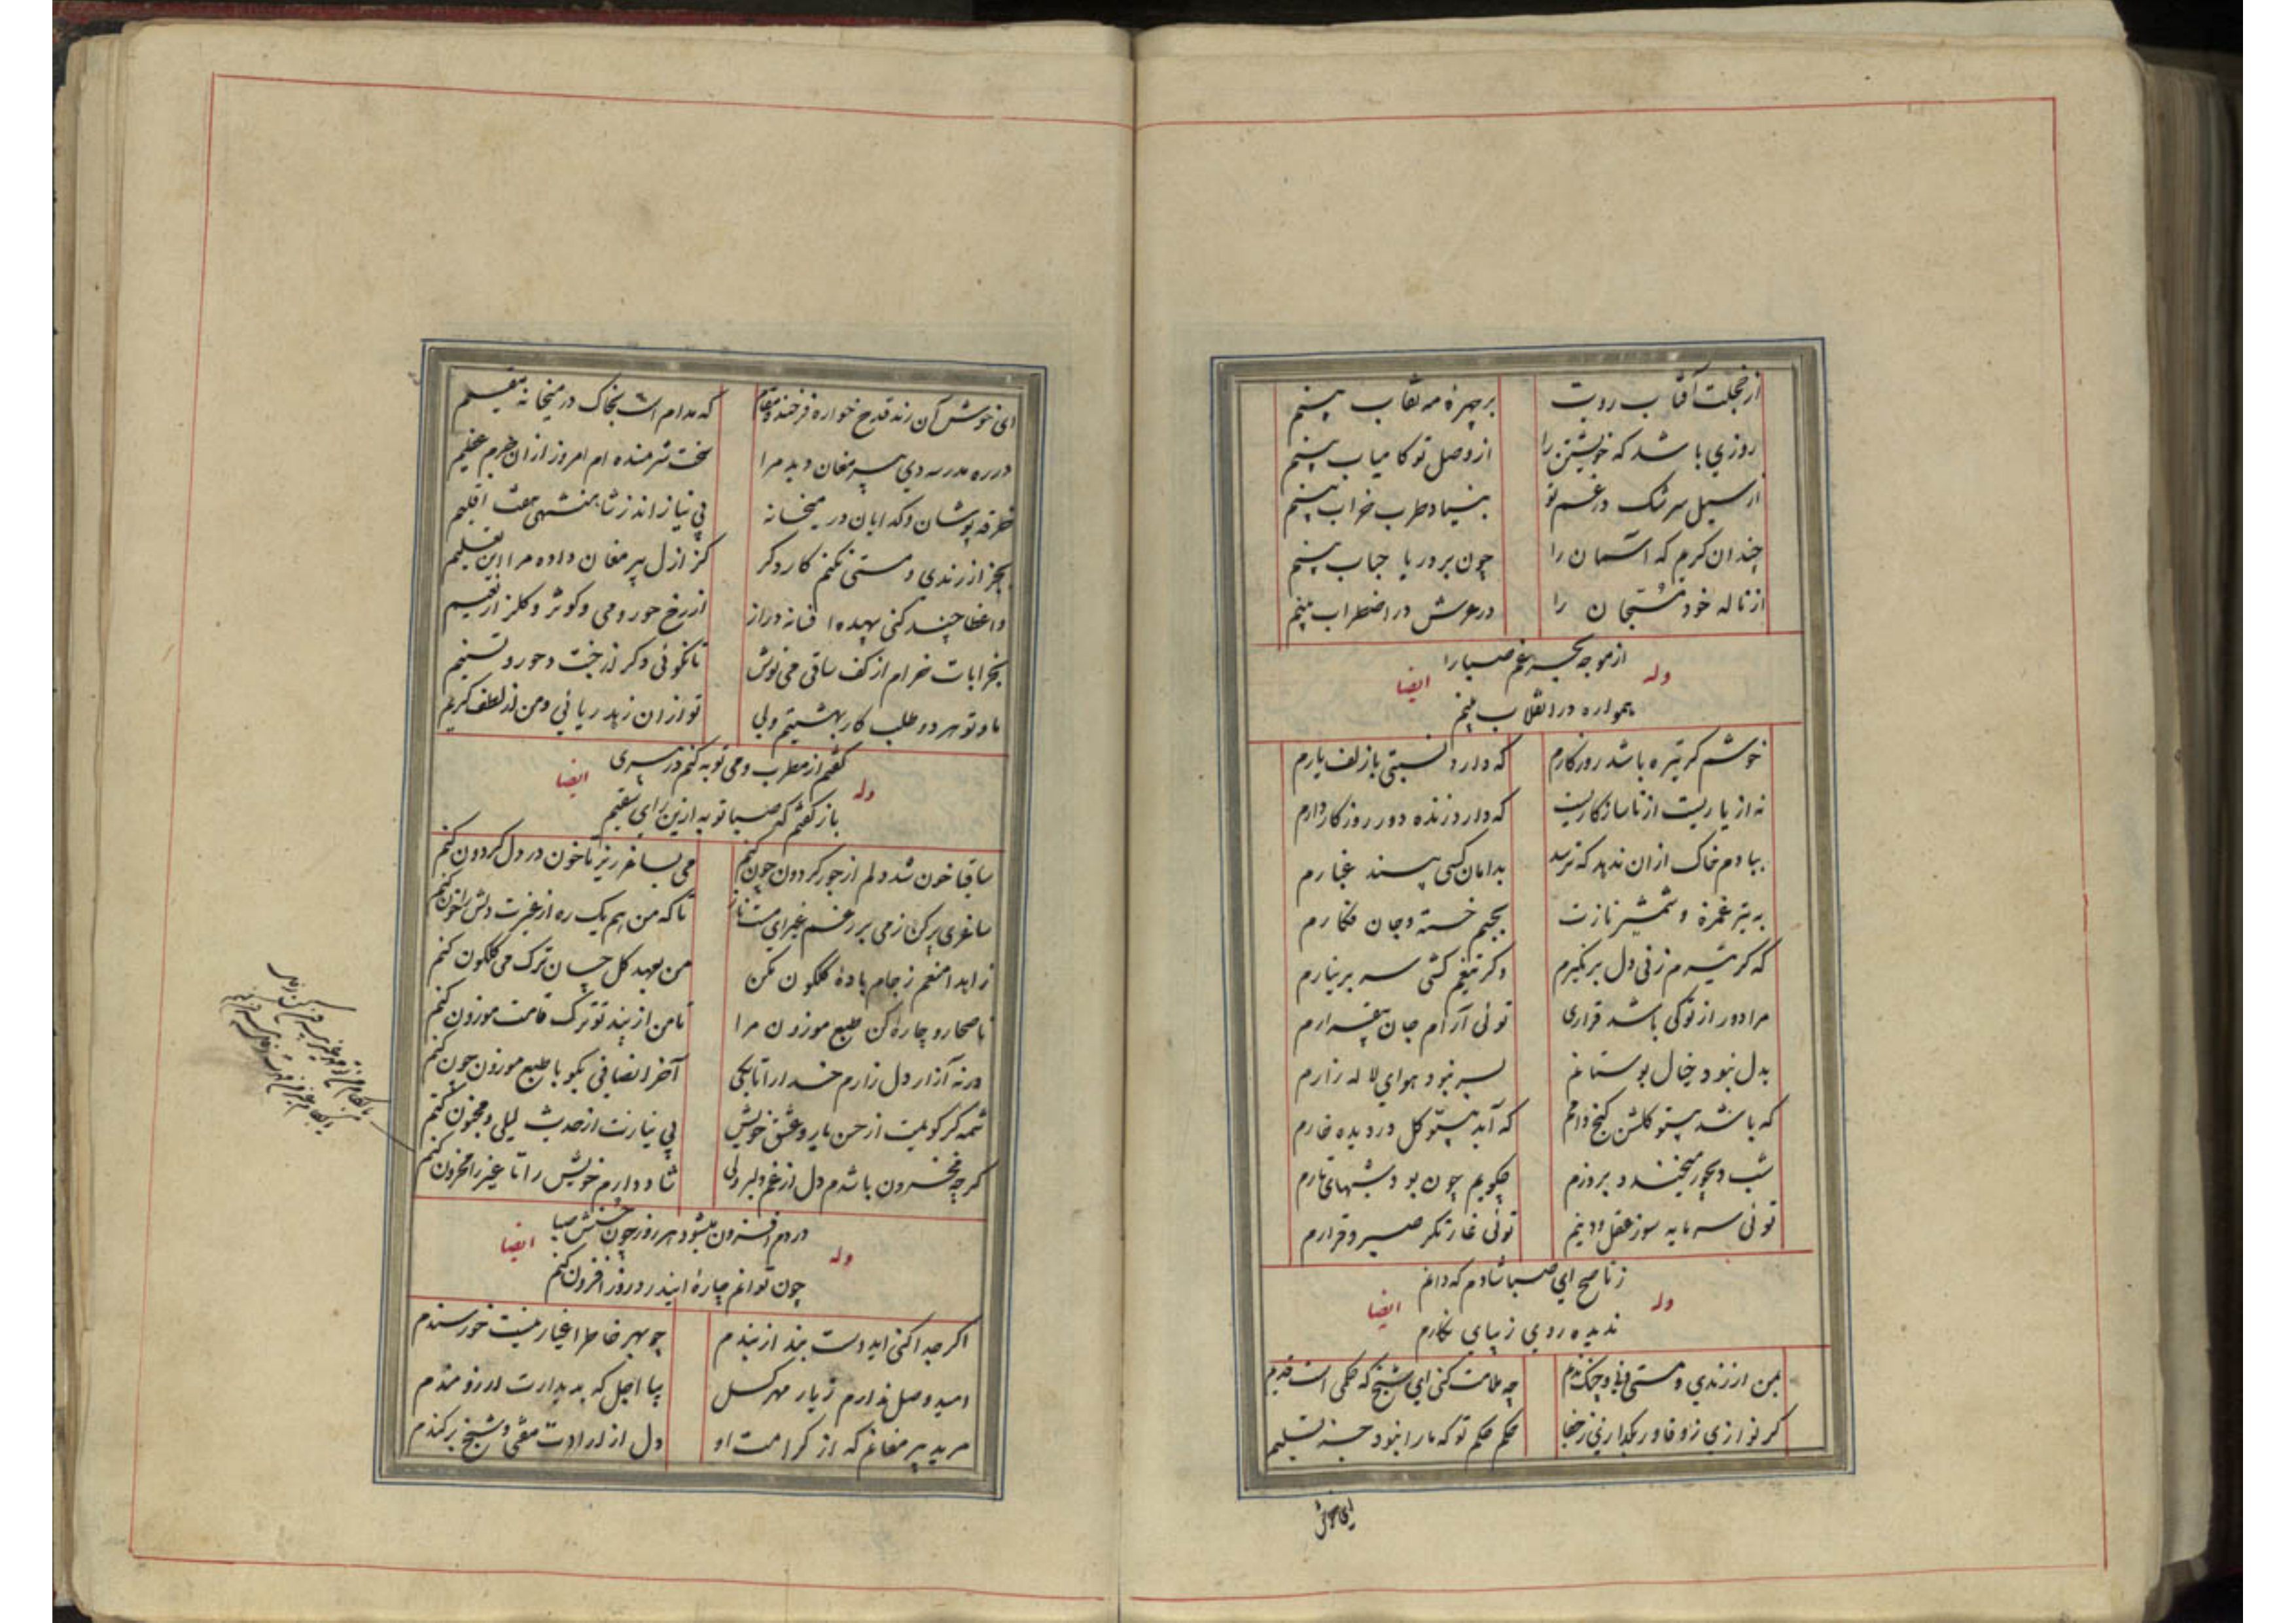 از خجلت آفتاب رویت بر چهرهٔ مه نقاب بینم
روزی باشد که خویشتن را از وصل تو کامیاب بینم
از سیل سرشک در غم تو بنیاد طرب خراب بینم
چندان گریم که آسمان را چون بر دریا حباب بینم
از ناله خود را در عرش در اضطراب بینم
از موجه بحر غم صبا را
وله ایضا
همواره در انقلاب بینم
خوشم گر تیره باشد روزگارم که دارد نسبتی با زلف یارم
نه از یاریست از ناسازکاریست که دارد زنده دور روزگارم
ببادم خاک از ان ندهد که ترسد بدامان کسی غبارم
به تیر غمزه و شمشیر نازت بجسم خسته و جان فکارم
که گر تیرم زنی دل بر نگیرم وگر تیغم کشی سر بر نیارم
مرا دور از تو کی باشد قراری توئی آرام جان بیقرارم
بدل نبود خیال بوستانم بسر نبود هوای لاله زارم
که باشد بیتو گلشن کنج دامم که آید بیتو گل در دیده خارم
شب دیجور میخندد بروزم چگویم چون بود شبهای تارم
توئی سرمایه سوز عقل و دینم توئی غارتگر صبر و قرارم
ز ناصح ای صبا شادم که دانم
وله ایضا
ندیده روی زیبای نگارم
بمن از رندی و مستی چه ملامت کنی ای شیخ که حکمی است قدیم
گر نوازی ز وفا ور بگدازی ز جفا حکم حکم تو که ما را نبود جز تسلیم
ای خوش
ای خوش آن رند قدح خواره فرخنده مقام که مدام است بخاک در میخانه مقیم
در ره مدرسه دی پیر مغان دید مرا سخت شرمنده ام امروز از ان جرم عظیم
خرقه پوشان و گدایان در میخانه بی نیازاند ز شاهنشهی هفت اقلیم
بجز از رندی و مستی نکنم کار دگر کز ازل پیر مغان داده مرا این تعلیم
واعظا چند کنی بیهده افسانه دراز از رخ حور و می و کوثر و گلزار نعیم
بخرابات خرام از کف ساقی می نوش تا نگوئی دگر از جنت و حور و تسنیم
ما و تو هر دو طلب کار بهشتیم ولی تو از ان زهد ریائی و من از لطف کریم
گفتم از مطرب و می توبه کنم در پیری
وله ایضا
باز گفتم که صبا توبه ازین رای سقیم
ساقیا خون شد دلم از جور گردون چون کنم می بساغر ریز تا خون در دل گردون کنم
ساغری پر کن ز می بر رغم غیر ای مست ناز تا که من هم یک ره از غیرت دلش را خون کنم
زاهدا منعم ز جام بادهٔ گلگون مکن من بعهد گل چسان ترک می گلگون کنم
ناصحا رو چارهٔ کن طبع موزون مرا تا من از پند تو ترک قامت موزون کنم
ورنه آزار دل زارم خدا را تا بکی آخر انصافی بگو با طبع موزون چون کنم
شمه گر گویمت از حسن یار و عشق خویش بی نیازت از حدیث لیلی و مجنون کنم
گرچه محزون باشدم دل از غم دلبر ولی شاد دارم خویش را تا غیر را محزون کنم
دردم افزون میشود هر روز چون حسنش صبا
وله ایضا
چون توانم چارهٔ ایندرد روز افزون کنم
اگر جدا کنی ایدوست بند از بندم چو بهر خاطر اغیار نیست خورسندم
امید وصل ندارم ز یار مهر گسل بیا اجل که بدیدارت آرزومندم
مرید پیر مغانم که از کرامت او دل از ارادت مفتی و شیخ برکندم